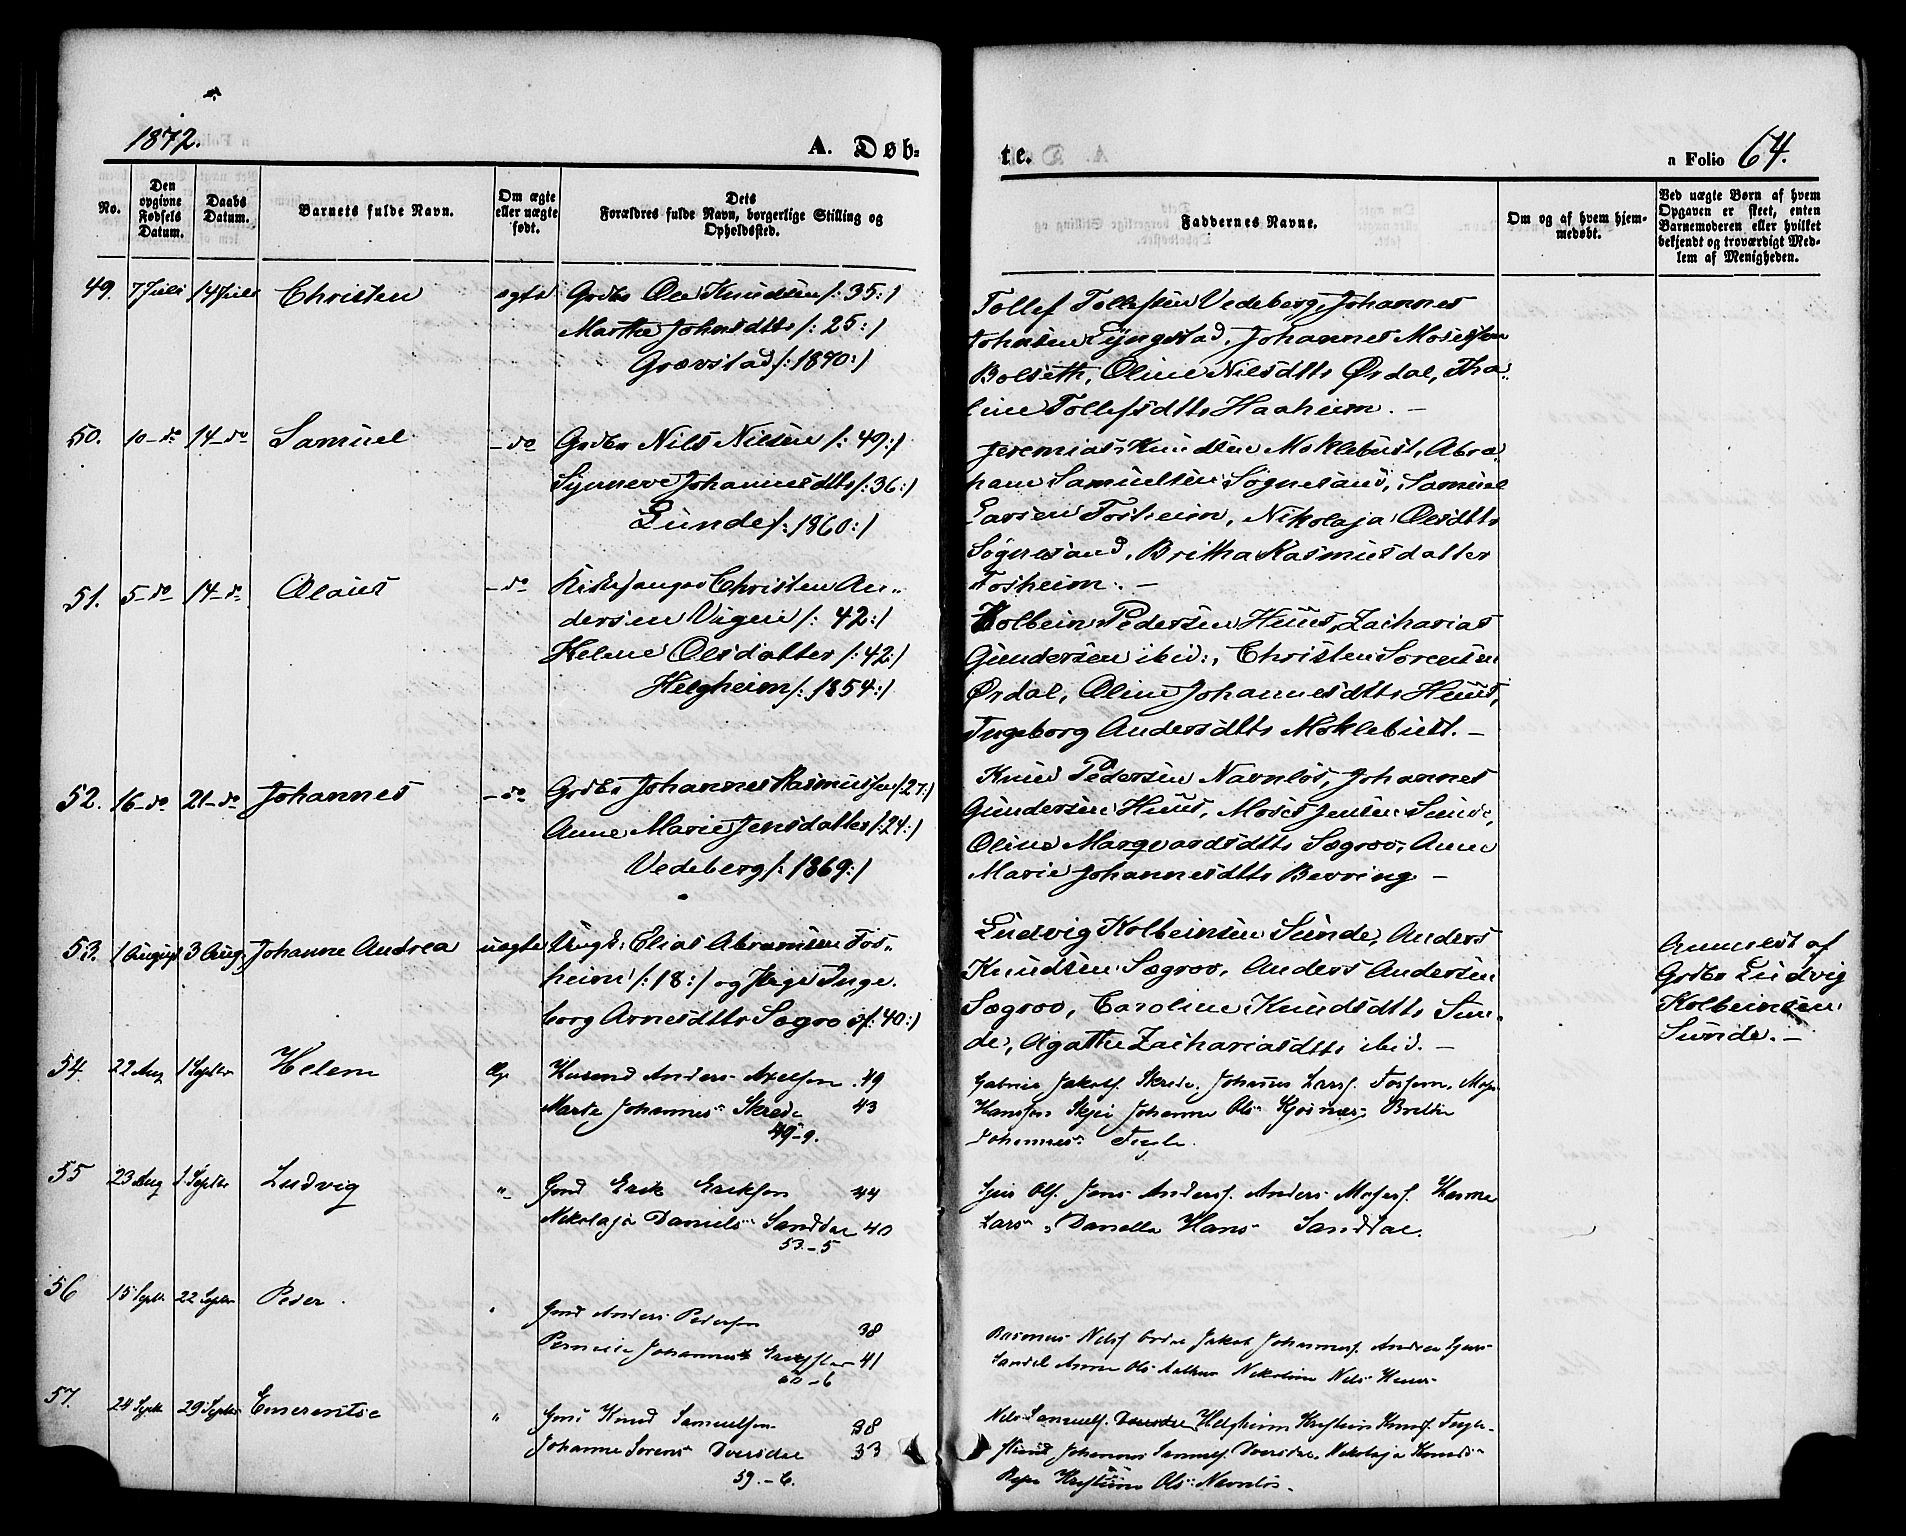 1872.
A. Døb-
te.
n Folio 64.
No.
Den opgivne Fødsels Datum.
Daabs Datum.
Barnets fulde Navn.
Om ægte eller uægte født.
Dets Forældres fulde Navn, borgerlige Stilling og Opholdssted.
Faddernes Navne.
Om og af hvem hjemmedøbt.
Ved uægte Børn af hvem Opgaven er skeet, enten Barnemoderen eller hvilket bekjendt og troværdigt Medlem af Menigheden.
49. 7 Juli 14 Juli Christen ægte Grdbr Ole Knudsen /: 35 :/
Marthe Johnsdttr /: 25 :/
Grævstad /: 1870 :/
Tollef Tollefsen Vedeberg, Johannes
Johnsen Lyngstad, Johannes Mosessen
Bolseth, Oline Nilsdttr Ørdal, Tha-
line Tollefsdttr Haaheim. -
50. 10 - do 14 - do Samuel - do Grdbr Nils Nilsen /: 49 :/
Synneve Johannesdttr /: 36 :/
Sunde /: 1860 :/
Jeremias Knudsen Moklebust, Abra-
ham Samuelsen Sognesand, Samuel
Larsen Fosheim, Nikolaja Olsdttr
Sognesand, Britha Rasmusdatter
Fosheim. -
51. 5 - do 14 - do Olaus - do Kirkesanger Christen An-
dersen Vigen /: 42 :/
Helene Olsdatter /: 42 :/
Helgheim /: 1854 :/
Kolbein Pedersen Huus, Zacharias
Gundersen ibid:, Christen Sorensen
Ørdal, Oline Johannesdttr Huus,
Ingeborg Andersdttr Moklebust. -
52. 16 - do 21 - do Johannes - do Grdbr Johannes Rasmussen /: 27 :/
Anne Marie Jensdatter /: 24 :/
Vedeberg /: 1869 :/
Knud Pedersen Navnløs, Johannes
Gundersen Huus, Moses Jensen Sunde,
Oline Marquardsdttr Sægrov, Anne
Marie Johannesdttr Bevring -
53. 1 August 3 Aug. Johanne Andrea uægte Ungk: Elias Abramsen Fos-
heim /: 18 :/ og Pige Inge-
borg Arnesdttr Sægrov /: 40 :/
Ludvig Kolbeinsen Sunde, Anders
Knudsen Sægrov, Anders Andersen
Sægrov, Caroline Knudsdttr Sun-
de, Agathe Zachariasdttr ibid. -
Anmeldt af
Grdbr Ludvig
Kolbeinsen
Sunde. -
54. 22 Aug 1 Septbr Helene Æg. Husmd Anders Axelsen 49
Marte Johannes- Skrede 43
49-9.
Gabriel Jakobs. Skrede, Johannes Larss. Fosheim, Moses
Hanssen Skjei Johanne Ols- Kjøsnes, Brithe
Johannes-
55 23 Aug 1 Septbr Ludvig "- Gmd Erik Eriksen 44
Nikolaja Daniels- Sanddal 40
53-5
Ols. Jens Anders. Anders Moses. Hanne
Lars- Danella Hans- Sanddal.
56 15 Septb 22 Septbr Peder. " Gmd Anders Pedersen 38
Pernille Johannesd. 41
60-6
Rasmus Nils. Ørdal Jakob Johanness. Andrea
Sandal Anne Ols- Nikoline Nils- Huus-
57. 24 Septb 29 Septbr Emerentse " Gmd Knud Samuelsen 38
Johanne Sorens- Dvergsdal 33
59.-6.
Nils Samuels. Helgheim Kristen Knuds.
Johannes Samuels. Dvergsdal, Nikolaja Knuds-
Kristine Ols- Navnløs-